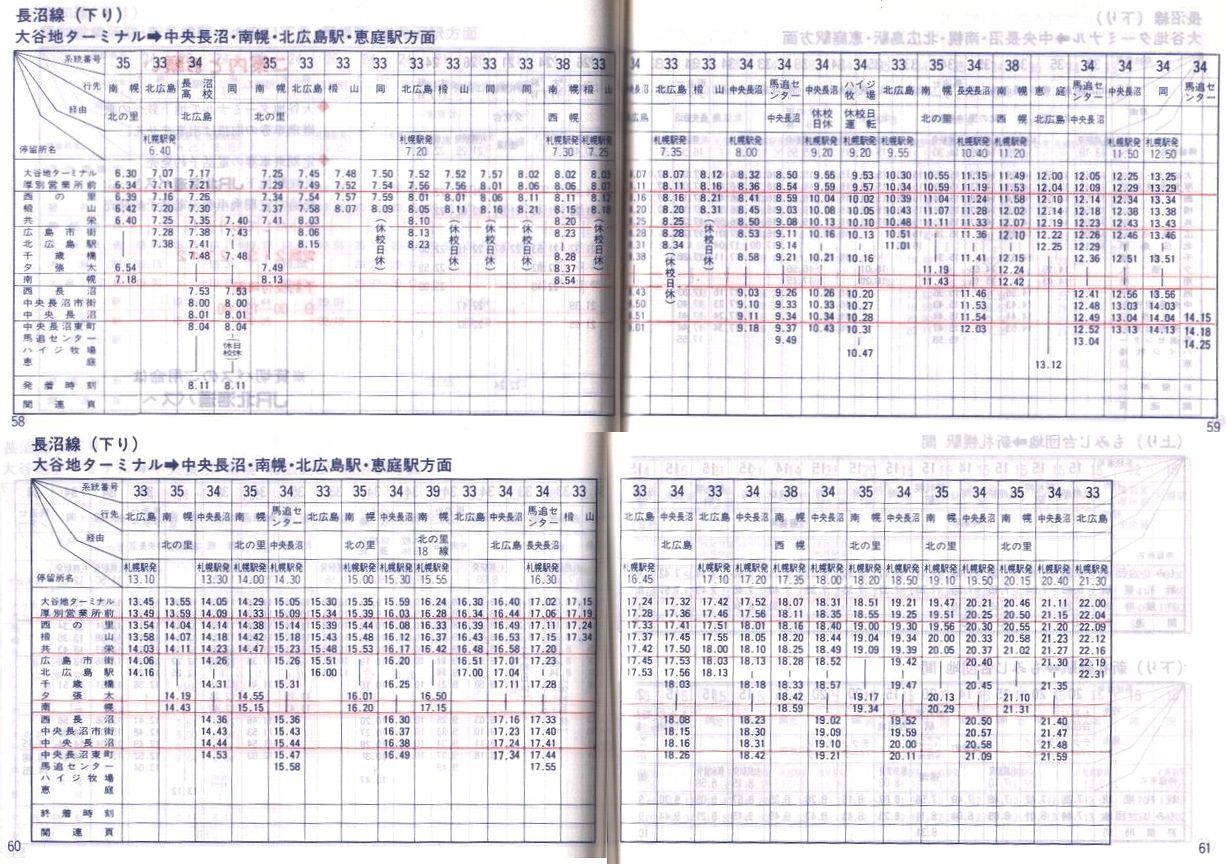 長沼線（下り）
大谷地ターミナル➡中央長沼・南幌・北広島駅・恵庭駅方面
系統番号 35 33 34 35 33 33 33 38 33
行先 南幌 北広島 長沼高校 同 南幌 北広島 椴山 同 北広島 椴山 同 同 南幌 椴山
経由 北の里 北広島 北の里 西幌
停留所名 札幌駅発 6.40 札幌駅発 7.20 札幌駅発 7.30 札幌駅発 7.25
大谷地ターミナル 6.30 7.07 7.17 7.25 7.45 7.48 7.50 7.52 7.52 7.57 8.02 8.02 8.03
厚別営業所前 6.34 7.11 7.21 7.29 7.49 7.52 7.54 7.56 7.56 8.01 8.06 8.06 8.07
西の里 6.39 7.16 7.26 7.34 7.54 7.57 7.59 8.01 8.01 8.06 8.11 8.11 8.12
椴山 6.42 7.20 7.30 7.37 7.58 8.07 8.09 8.05 8.11 8.16 8.21 8.15 8.18
共栄 6.40 7.25 7.35 7.40 7.41 8.03 8.10 8.20
広島市街 7.28 7.38 7.43 8.06 (休校日休) 8.13 (休校日休) (休校日休) (休校日休) 8.23 (休校日休)
北広島駅 7.38 7.41 8.15 8.23
千歳橋 7.48 7.48 8.28
夕張太 6.54 7.49 8.37
南幌 7.18 8.13 8.54
西長沼 7.53 7.53
中央長沼市街 8.00 8.00
中央長沼 8.01 8.01
中央長沼東町 8.04 8.04
馬追センター (休校日休)
ハイジ牧場
恵庭
発着時刻 8.11 8.11
関連頁
58
33 33 34 34 34 34 33 35 34 38 33 34 34 34 34
北広島 椴山 中央長沼 馬追センター 中央長沼 ハイジ牧場 北広島 南幌 中央長沼 南幌 恵庭 馬追センター 中央長沼 同 馬追センター
中央長沼 休校日休 休校日運転 北の里 西幌 北広島 中央長沼
札幌駅発 7.35 札幌駅発 8.00 札幌駅発 9.20 札幌駅発 9.20 札幌駅発 9.55 札幌駅発 10.40 札幌駅発 11.20 札幌駅発 11.50 札幌駅発 12.50
8.07 8.12 8.32 8.50 9.55 9.53 10.30 10.55 11.15 11.49 12.00 12.05 12.25 13.25
8.11 8.16 8.36 8.54 9.59 9.57 10.34 10.59 11.19 11.53 12.04 12.09 12.29 13.29
8.16 8.21 8.41 8.59 10.04 10.02 10.39 11.04 11.24 11.58 12.10 12.14 12.34 13.34
8.20 8.31 8.45 9.03 10.08 10.05 10.43 11.07 11.28 12.02 12.14 12.18 12.38 13.38
8.25 8.50 9.08 10.13 10.10 10.48 11.11 11.33 12.07 12.19 12.23 12.43 13.43
8.28 (休校日休) 8.53 9.11 10.16 10.13 10.51 11.36 12.10 12.22 12.26 12.46 13.46
8.34 9.14 11.01 12.25 12.29
(休校日休) 8.58 9.21 10.21 10.16 11.41 12.15 12.36 12.51 13.51
11.19 12.24
11.43 12.42
9.03 9.26 10.26 10.20 11.46 12.41 12.56 13.56
9.10 9.33 10.33 10.27 11.53 12.48 13.03 14.03
9.11 9.34 10.34 10.28 11.54 12.49 13.04 14.04 14.15
9.18 9.37 10.43 10.31 12.03 12.52 13.13 14.13 14.18
9.49 13.04 14.25
10.47
13.12
59
長沼線（下り）
大谷地ターミナル➡中央長沼・南幌・北広島駅・恵庭駅方面
系統番号 33 35 34 35 34 33 35 34 39 33 34 34 33
行先 北広島 南幌 中央長沼 南幌 馬追センター 北広島 南幌 中央長沼 南幌 北広島 中央長沼 馬追センター 椴山
経由 北の里 北の里 中央長沼 北の里 北の里18線 北広島 長央長沼
停留所名 札幌駅発 13.10 札幌駅発 13.30 札幌駅発 14.00 札幌駅発 14.30 札幌駅発 15.00 札幌駅発 15.30 札幌駅発 15.55 札幌駅発 16.30
大谷地ターミナル 13.45 13.55 14.05 14.29 15.05 15.30 15.35 15.59 16.24 16.30 16.40 17.02 17.15
厚別営業所前 13.49 13.59 14.09 14.33 15.09 15.34 15.39 16.03 16.28 16.34 16.44 17.06 17.19
西の里 13.54 14.04 14.14 14.38 15.14 15.39 15.44 16.08 16.33 16.39 16.49 17.11 17.24
椴山 13.58 14.07 14.18 14.42 15.18 15.43 15.48 16.12 16.37 16.43 16.53 17.15 17.34
共栄 14.03 14.11 14.23 14.47 15.23 15.48 15.53 16.17 16.42 16.48 16.58 17.20
広島市街 14.06 14.26 15.26 15.51 16.20 16.51 17.01 17.23
北広島駅 14.16 16.00 17.00 17.04
千歳橋 14.31 15.31 16.25 17.11 17.28
夕張太 14.19 14.55 16.01 16.50
南幌 14.43 15.15 16.20 17.15
西長沼 14.36 15.36 16.30 17.16 17.33
中央長沼市街 14.43 15.43 16.37 17.23 17.40
中央長沼 14.44 15.44 16.38 17.24 17.41
中央長沼東町 14.53 15.47 16.49 17.34 17.44
馬追センター 15.58 17.55
ハイジ牧場
恵庭
終着時刻
関連頁
60
33 34 33 34 38 34 35 34 35 34 35 34 33
北広島 中央長沼 北広島 中央長沼 南幌 中央長沼 南幌 中央長沼 南幌 中央長沼 南幌 中央長沼 北広島
北広島 西幌 北の里 北の里 北の里
札幌駅発 16.45 札幌駅発 17.10 札幌駅発 17.20 札幌駅発 17.35 札幌駅発 18.00 札幌駅発 18.20 札幌駅発 18.50 札幌駅発 19.10 札幌駅発 19.50 札幌駅発 20.15 札幌駅発 20.40 札幌駅発 21.30
17.24 17.32 17.42 17.52 18.07 18.31 18.51 19.21 19.47 20.21 20.46 21.11 22.00
17.28 17.36 17.46 17.56 18.11 18.35 18.55 19.25 19.51 20.25 20.50 21.15 22.04
17.33 17.41 17.51 18.01 18.16 18.40 19.00 19.30 19.56 20.30 20.55 21.20 22.09
17.37 17.45 17.55 18.05 18.20 18.44 19.04 19.34 20.00 20.33 20.58 21.23 22.12
17.42 17.50 18.00 18.10 18.25 18.49 19.09 19.39 20.05 20.37 21.02 21.27 22.16
17.45 17.53 18.03 18.13 18.28 18.52 19.42 20.40 21.30 22.19
17.53 17.56 18.13 22.31
18.03 18.18 18.33 18.57 19.47 20.45 21.35
18.42 19.17 20.13 21.10
18.59 19.34 20.29 21.31
18.08 18.23 19.02 19.52 20.50 21.40
18.15 18.30 19.09 19.59 20.57 21.47
18.16 18.31 19.10 20.00 20.58 21.48
18.26 18.42 19.21 20.11 21.09 21.59
61